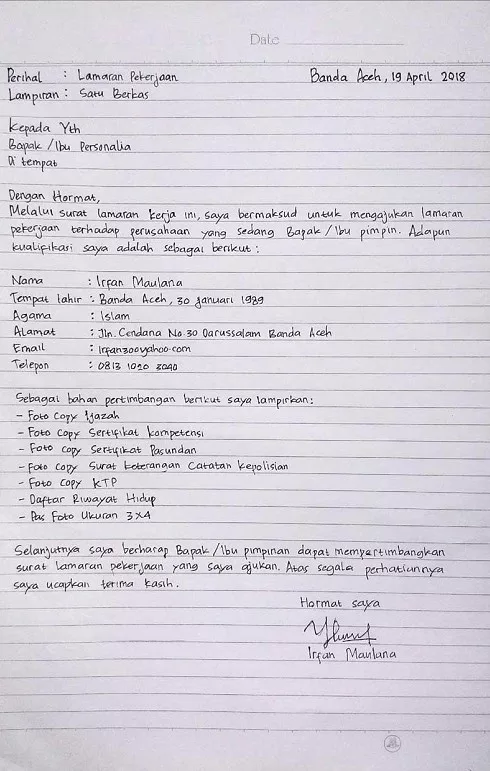 Date
Perihal : Lamaran Pekerjaan Banda Aceh, 19 April 2018
Lampiran : Satu Berkas
Kepada Yth
Bapak / Ibu Personalia
Di tempat
Dengan Hormat,
Melalui surat lamaran kerja ini, saya bermaksud untuk mengajukan lamaran
pekerjaan terhadap perusahaan yang sedang Bapak / Ibu pimpin. Adapun
kualifikasi saya adalah sebagai berikut :
Nama : Irfan Maulana
Tempat lahir : Banda Aceh, 30 Januari 1989
Agama : Islam
Alamat : Jln. Cendana No 30 Darussalam Banda Aceh
Email : Irfan300yahoo.com
Telepon : 0813 1020 3040
Sebagai bahan pertimbangan berikut saya lampirkan :
- Foto Copy Ijazah
- Foto Copy Sertifikat Kompetensi
- Foto Copy Sertifikat Pasundan
- Foto Copy Surat Keterangan Catatan Kepolisian
- Foto Copy KTP
- Daftar Riwayat Hidup
- Pas Foto Ukuran 3x4
Selanjutnya saya berharap Bapak / Ibu pimpinan dapat mempertimbangkan
surat lamaran pekerjaan yang saya ajukan. Atas segala perhatiannya
saya ucapkan terima kasih.
Hormat saya
Irfan Maulana